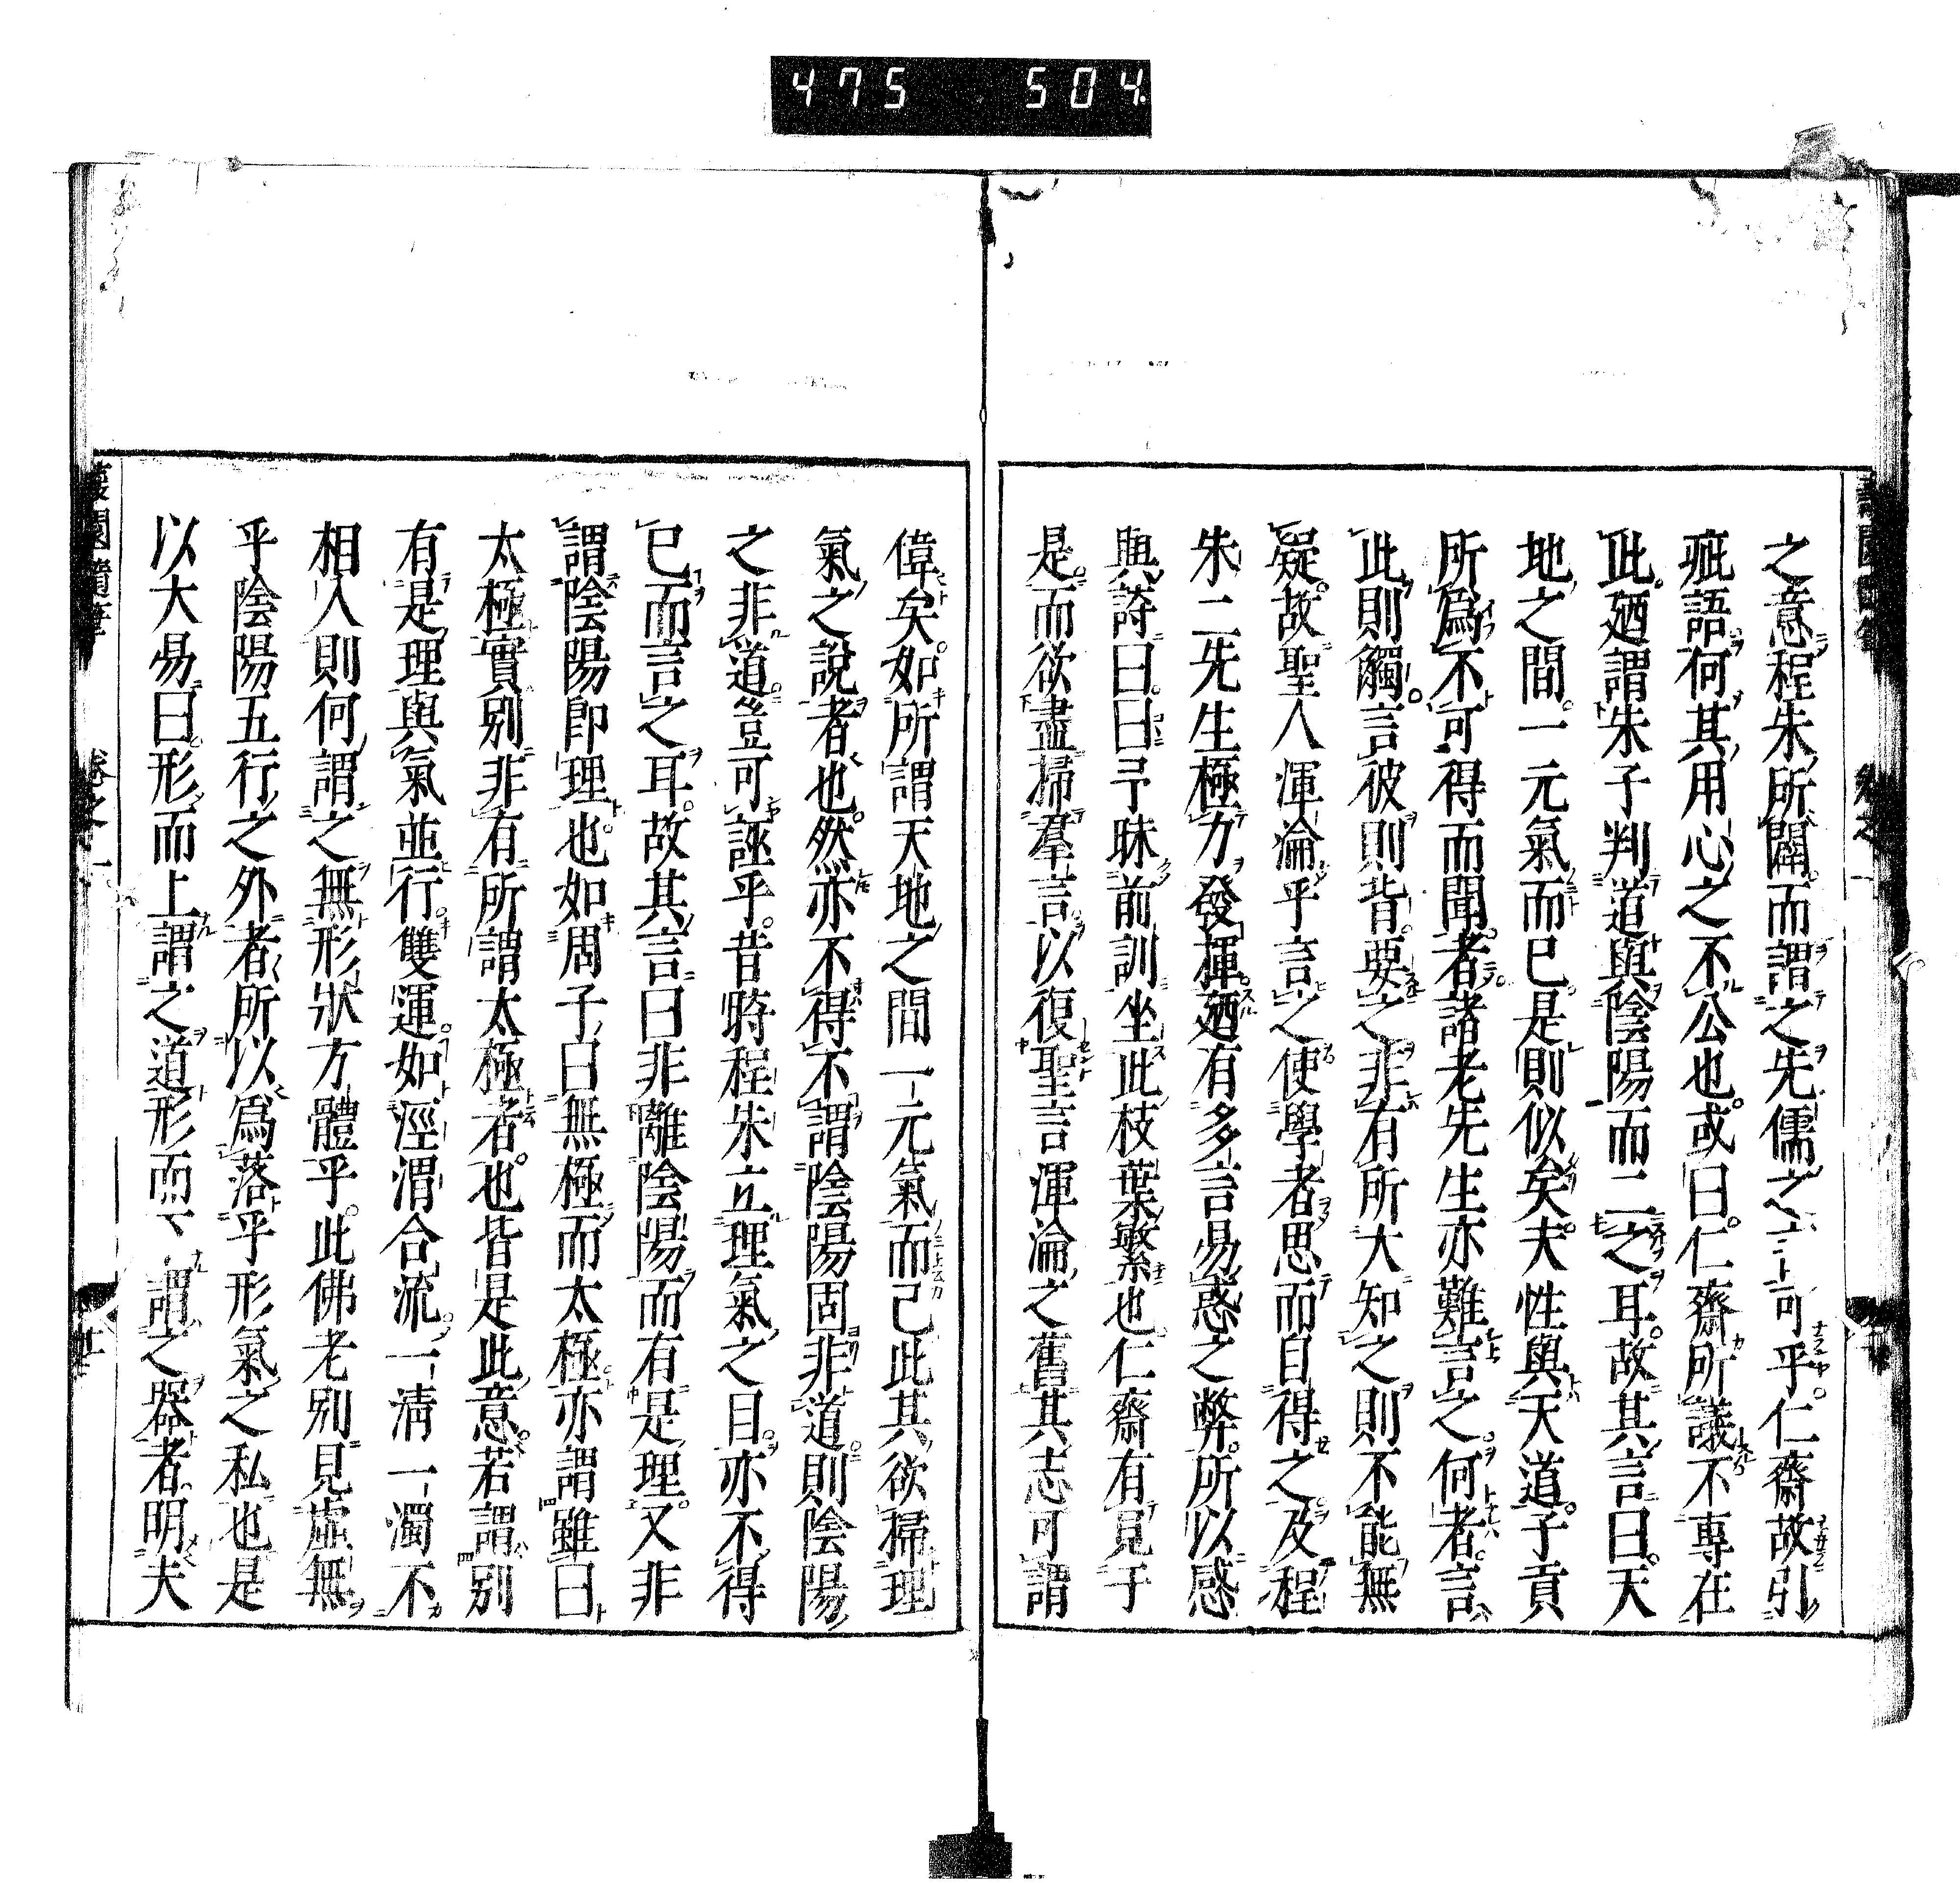 475 504.
之意程朱所闢而謂之先儒之言可乎仁齋故引
疵語何其用心之不公也或曰仁齋所議不專在
此廼謂朱子判道與陰陽而二之耳故其言曰天
地之間一元氣而已是則似矣夫性與天道子貢
所爲不可得而聞者諸老先生亦難言之何者言
此則觸言彼則背要之非有所大知之則不能無
疑故聖人渾淪乎言之使學者思而自得之及程
朱二先生極力發揮廼有多言易惑之弊所以惑
與詩曰曰予昧前訓坐此枝葉繁也仁齋有見于
是而欲盡掃羣言以復聖言渾淪之舊其志可謂
偉矣如所謂天地之間一元氣而已此其欲掃理
氣之說者也然亦不得不謂陰陽固非道則陰陽
之非道豈可誣乎昔時程朱立理氣之目亦不得
已而言之耳故其言曰非離陰陽而有是理又非
謂陰陽卽理也如周子曰無極而太極亦謂雖曰
太極實別非有所謂太極者也皆是此意若謂別
有是理與氣並行雙運如涇渭合流一淸一濁不
相入則何謂之無形狀方體乎此佛老別見虛無
乎陰陽五行之外者所以爲落乎形氣之私也是
以大易曰形而上謂之道形而下謂之器者明夫
蘐園隨筆 卷之一